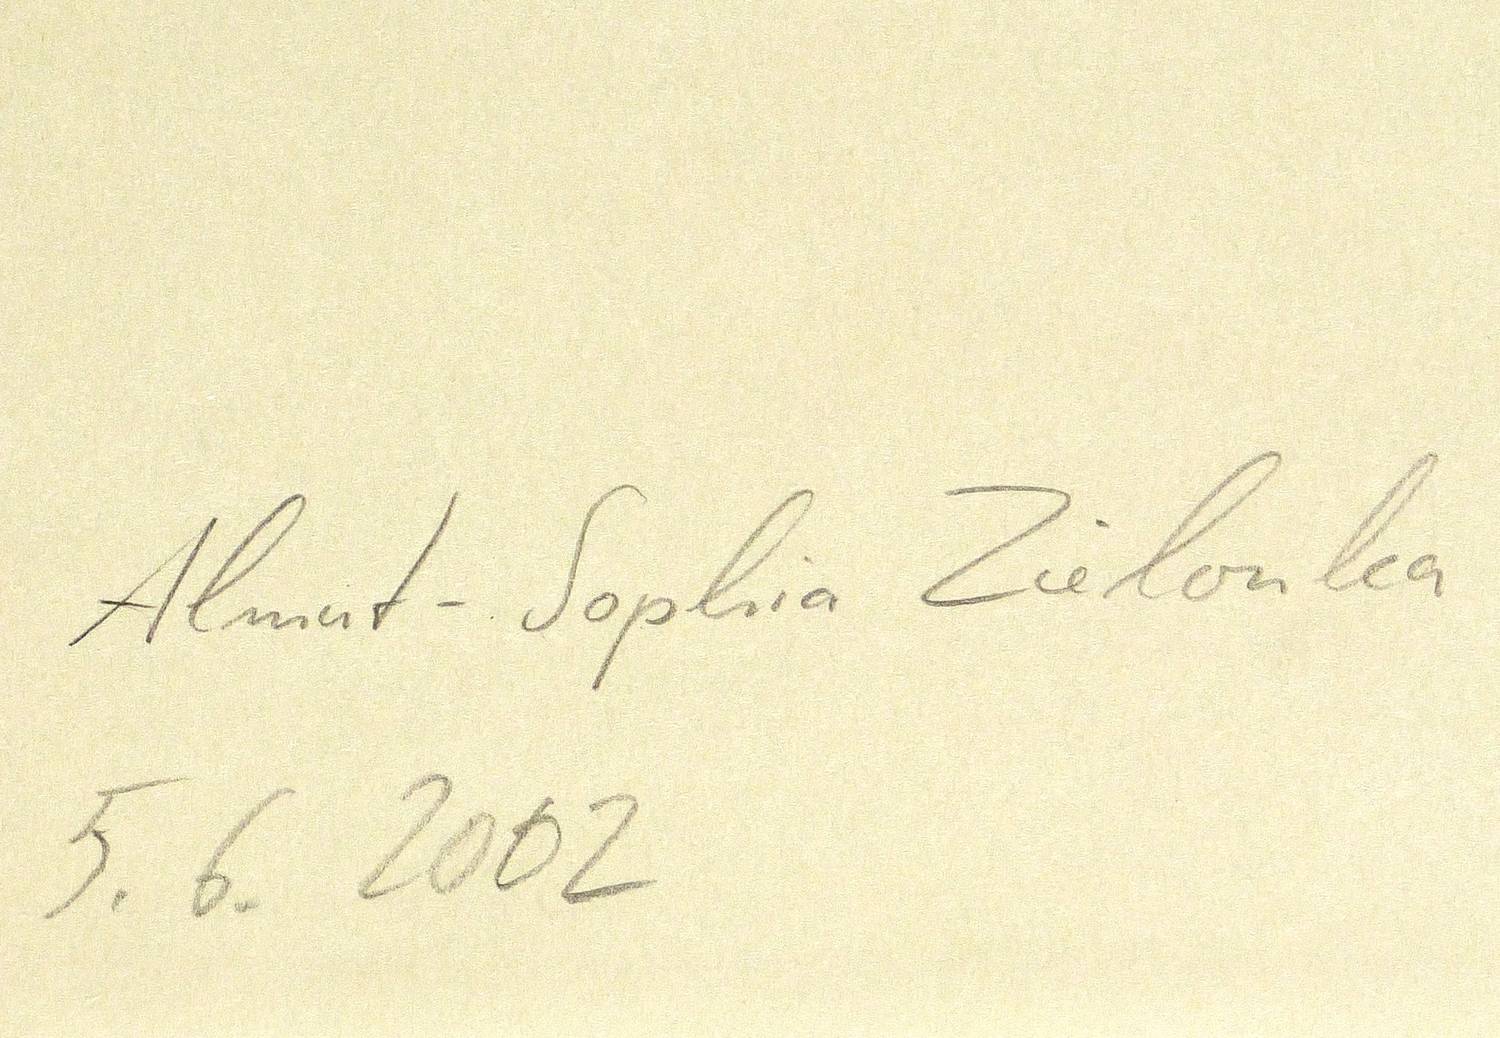 Almut-Sophia Zielonka
5.6.2002